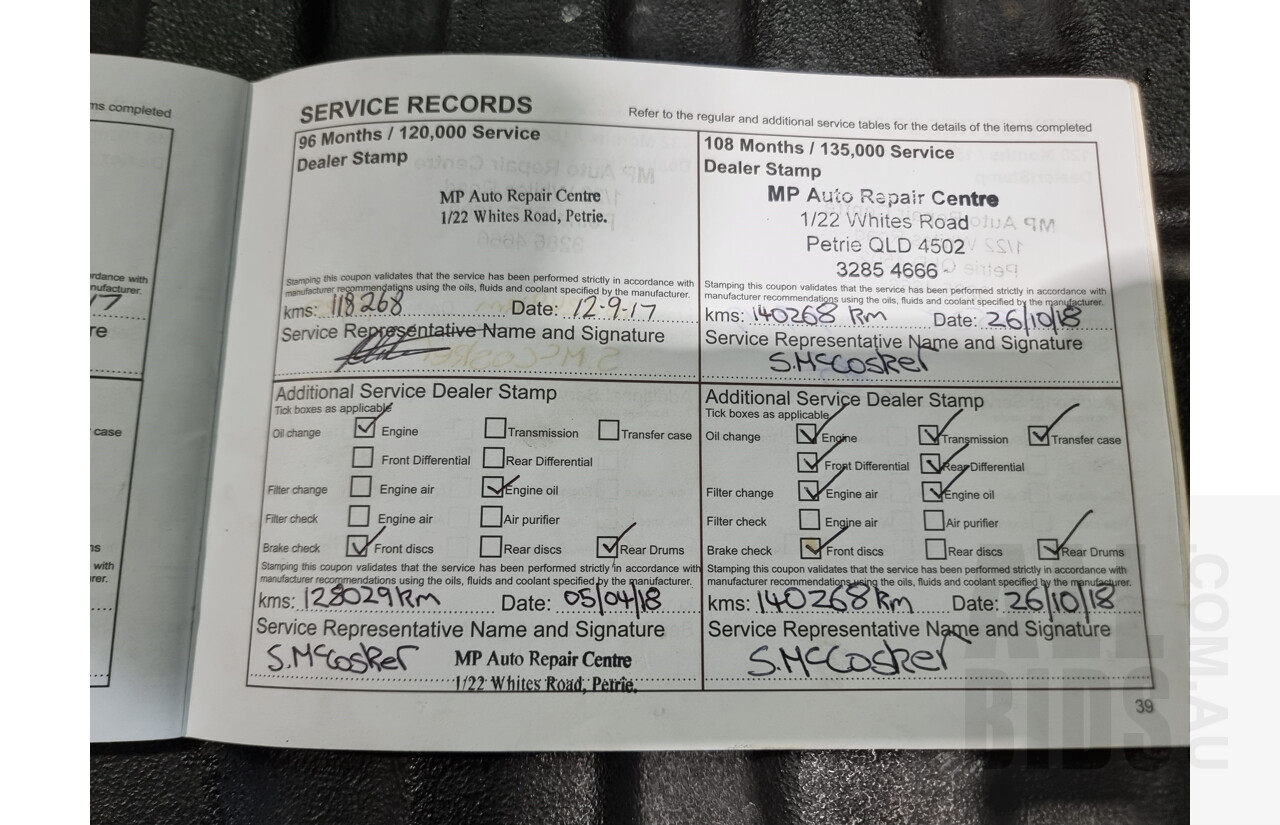 ns completed
rdance with
nufacturer.
17
re
case
ns
with
rer.
SERVICE RECORDS
Refer to the regular and additional service tables for the details of the items completed
96 Months / 120,000 Service
Dealer Stamp
MP Auto Repair Centre
1/22 Whites Road, Petrie.
Stamping this coupon validates that the service has been performed strictly in accordance with
manufacturer recommendations using the oils, fluids and coolant specified by the manufacturer.
kms: 118268 Date: 12-9-17
Service Representative Name and Signature
Additional Service Dealer Stamp
Tick boxes as applicable
Oil change Engine Transmission Transfer case
Front Differential Rear Differential
Filter change Engine air Engine oil
Filter check Engine air Air purifier
Brake check Front discs Rear discs Rear Drums
Stamping this coupon validates that the service has been performed strictly in accordance with
manufacturer recommendations using the oils, fluids and coolant specified by the manufacturer.
kms: 128029km Date: 05/04/18
Service Representative Name and Signature
S.McCosker MP Auto Repair Centre
1/22 Whites Road, Petrie.
108 Months / 135,000 Service
Dealer Stamp
MP Auto Repair Centre
1/22 Whites Road
Petrie QLD 4502
3285 4666
Stamping this coupon validates that the service has been performed strictly in accordance with
manufacturer recommendations using the oils, fluids and coolant specified by the manufacturer.
kms: 140268 km Date: 26/10/18
Service Representative Name and Signature
S.McCosker
Additional Service Dealer Stamp
Tick boxes as applicable
Oil change Engine Transmission Transfer case
Front Differential Rear Differential
Filter change Engine air Engine oil
Filter check Engine air Air purifier
Brake check Front discs Rear discs Rear Drums
Stamping this coupon validates that the service has been performed strictly in accordance with
manufacturer recommendations using the oils, fluids and coolant specified by the manufacturer.
kms: 140268km Date: 26/10/18
Service Representative Name and Signature
S.McCosker
39
ALL
BIDS
.COM.AU